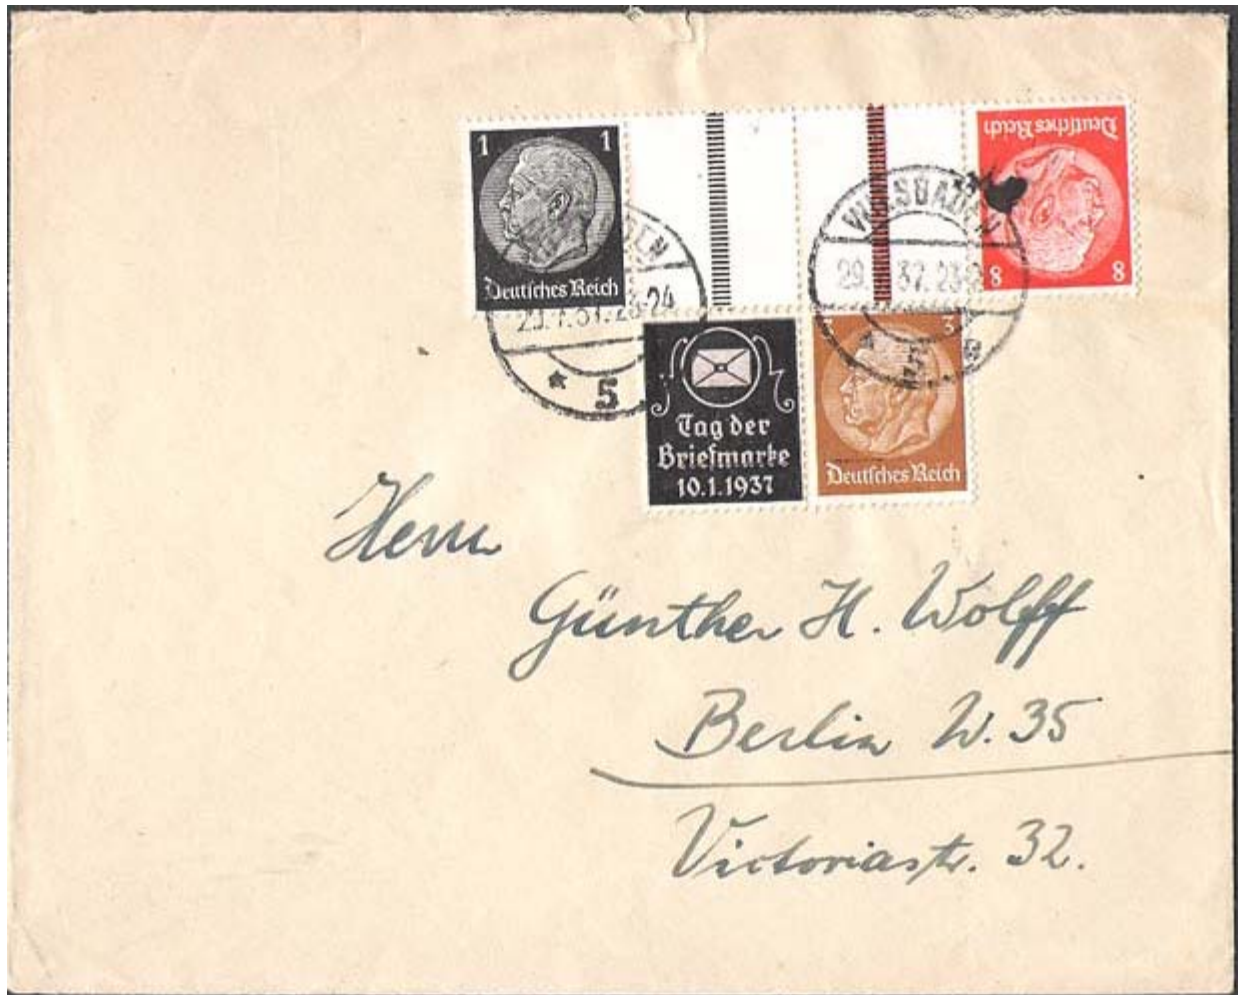 1 1
Deutsches Reich
Deutsches Reich
8 8
WIESBADEN
29. 37. 23-
23-24
* 5
Tag der
Briefmarke
10.1.1937
3
Deutsches Reich
Herrn
Günther H. Wolff
Berlin W. 35
Victoriastr. 32.